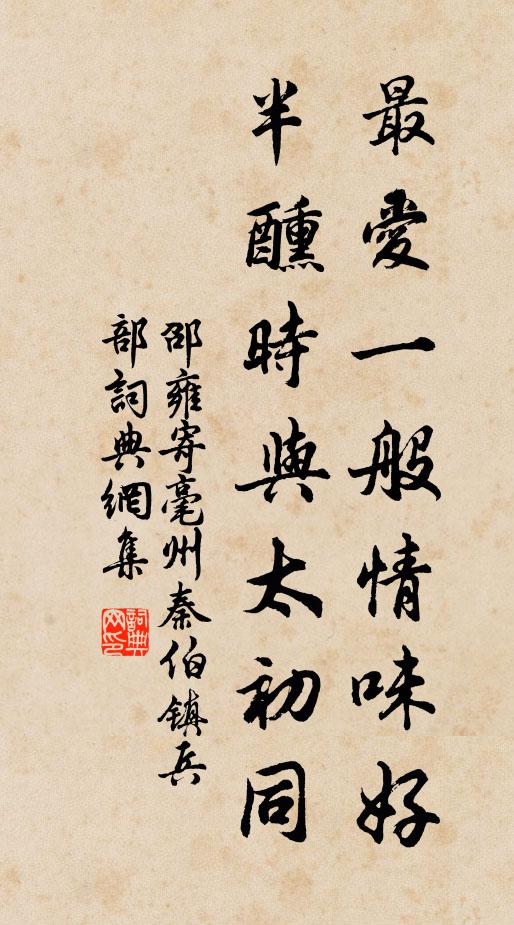 最愛一般情味好
半醺時與太初同
邵雍寄亳州秦伯镇兵
部詞典網集
詞典
网印